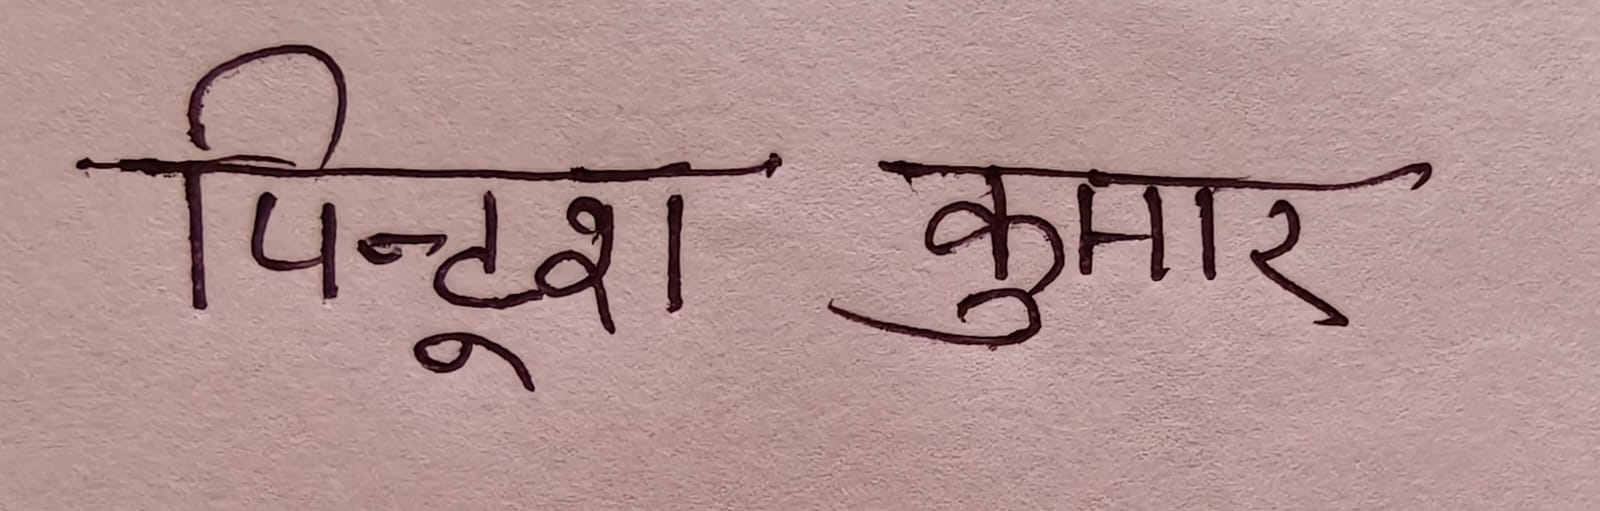 पिन्टूश कुमार